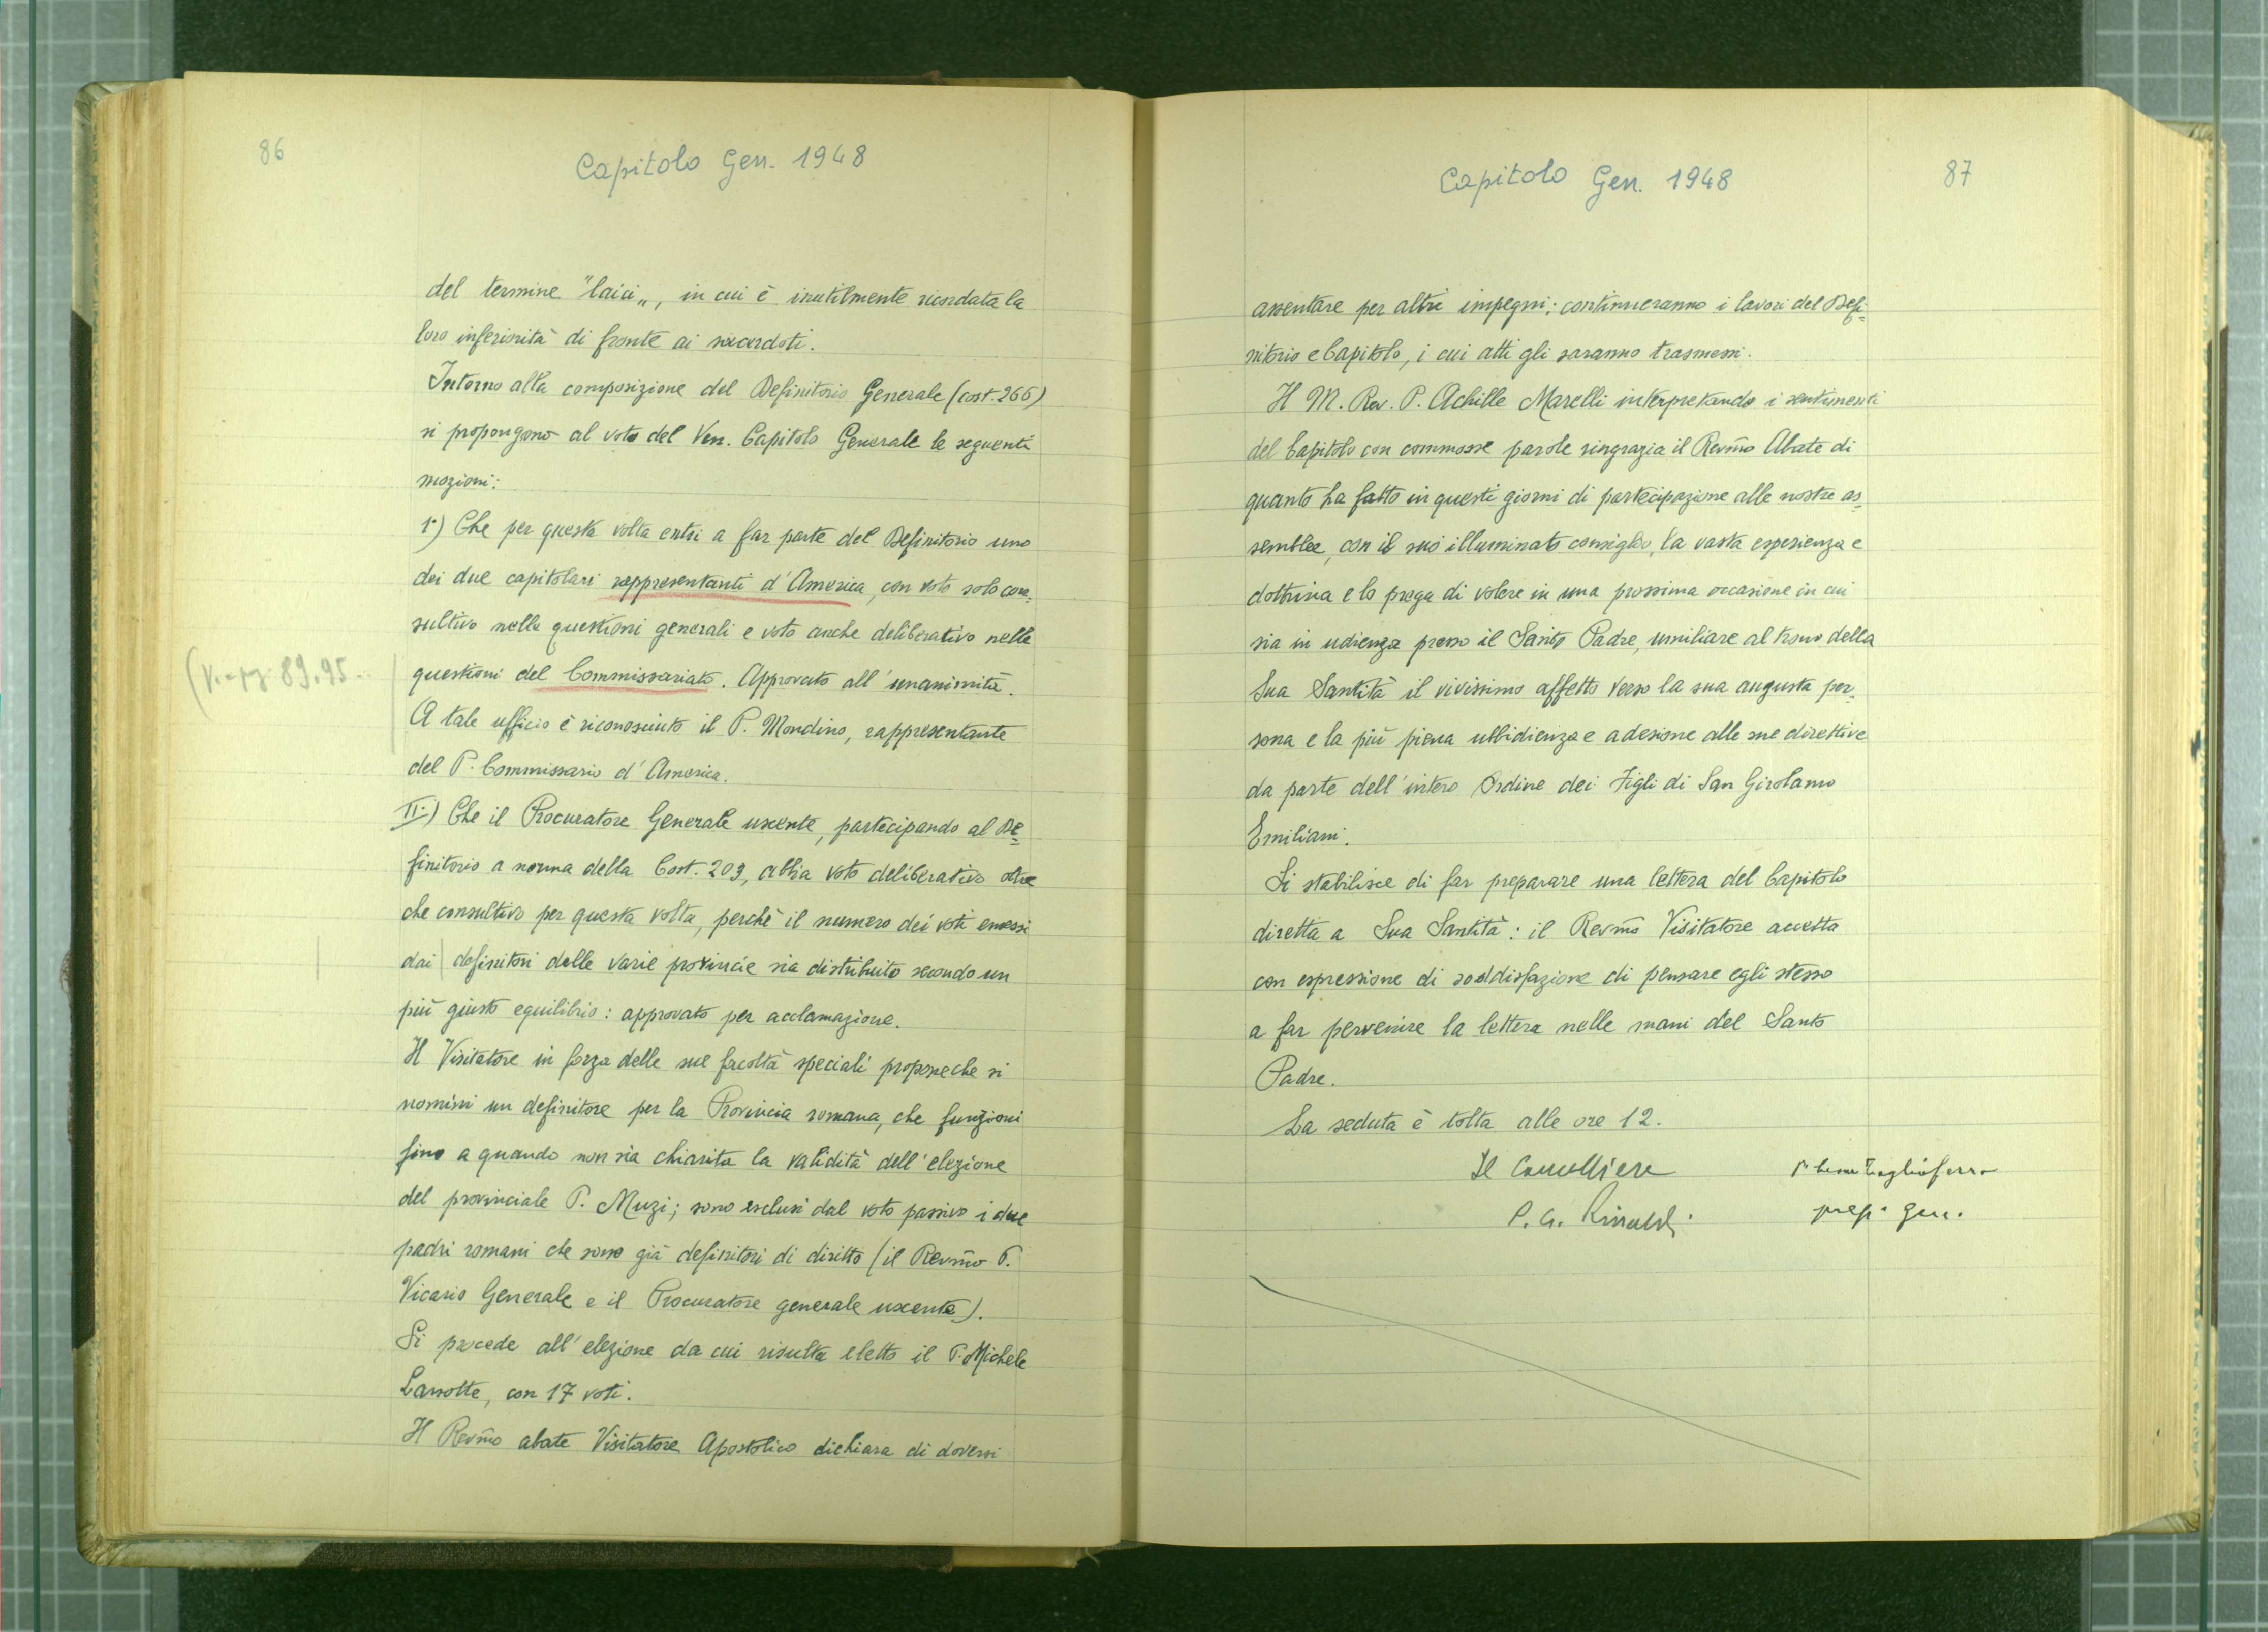 86
Capitolo Gen. 1948
del termine "laici„, in cui è inutilmente ricordata la
loro inferiorità di fronte ai sacerdoti.
Intorno alla composizione del Definitorio Generale (cost. 266)
si propongono al voto del Ven. Capitolo Generale le seguenti
mozioni:
1°) Che per questa volta entri a far parte del Definitorio uno
dei due capitolari rappresentanti d'America, con voto solo con-
sultivo nelle questioni generali e voto anche deliberativo nelle
(V. pg. 89.95
questioni del Commissariato. Approvato all'unanimità.
A tale ufficio è riconosciuto il P. Mondino, rappresentante
del P. Commissario d'America.
II.) Che il Procuratore Generale uscente, partecipando al De=
finitorio a norma della Cost. 203, abbia voto deliberativo oltre
che consultivo per questa volta, perchè il numero dei voti emessi
dai definitori delle varie provincie sia distribuito secondo un
più giusto equilibrio: approvato per acclamazione.
Il Visitatore in forza delle sue facoltà speciali propone che si
nomini un definitore per la Provincia romana, che funzioni
fino a quando non sia chiarita la validità dell'elezione
del provinciale P. Muzi; sono esclusi dal voto passivo i due
padri romani che sono già definitori di diritto (il Revmo P.
Vicario Generale e il Procuratore generale uscente).
Si procede all'elezione da cui risulta eletto il P. Michele
Lanotte, con 17 voti.
Il Revmo abate Visitatore Apostolico dichiara di doversi
Capitolo Gen. 1948
87
assentare per altri impegni; continueranno i lavori del Defi=
nitorio e Capitolo, i cui atti gli saranno trasmessi.
Il M. Rev. P. Achille Marelli interpretando i sentimenti
del Capitolo con commosse parole ringrazia il Revmo Abate di
quanto ha fatto in questi giorni di partecipazione alle nostre as=
semblee, con il suo illuminato consiglio, la vasta esperienza e
dottrina e lo prega di volere in una prossima occasione in cui
sia in udienza presso il Santo Padre, umiliare al trono della
Sua Santità il vivissimo affetto verso la sua augusta per=
sona e la più piena ubbidienza e adesione alle sue direttive
da parte dell'intero Ordine dei Figli di San Girolamo
Emiliani.
Si stabilisce di far preparare una lettera del Capitolo
diretta a Sua Santità: il Revmo Visitatore accetta
con espressione di soddisfazione di pensare egli stesso
a far pervenire la lettera nelle mani del Santo
Padre.
La seduta è tolta alle ore 12.
Il Cancelliere
Tagliaferro
P. G. Rinaldi
prep. gen.